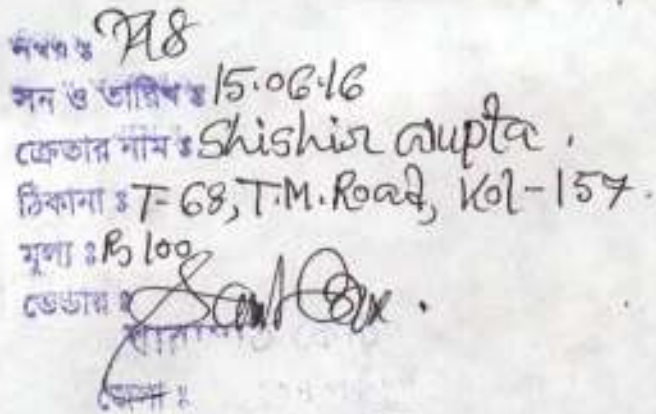 নম্বর ঃ 748
সন ও তারিখ ঃ 15.06.16
ক্রেতার নাম ঃ Shishir Gupta.
ঠিকানা ঃ T-68, T.M. Road, Kol-157.
মূল্য ঃ Rs 100
ভেন্ডার ঃ
জেলা ঃ